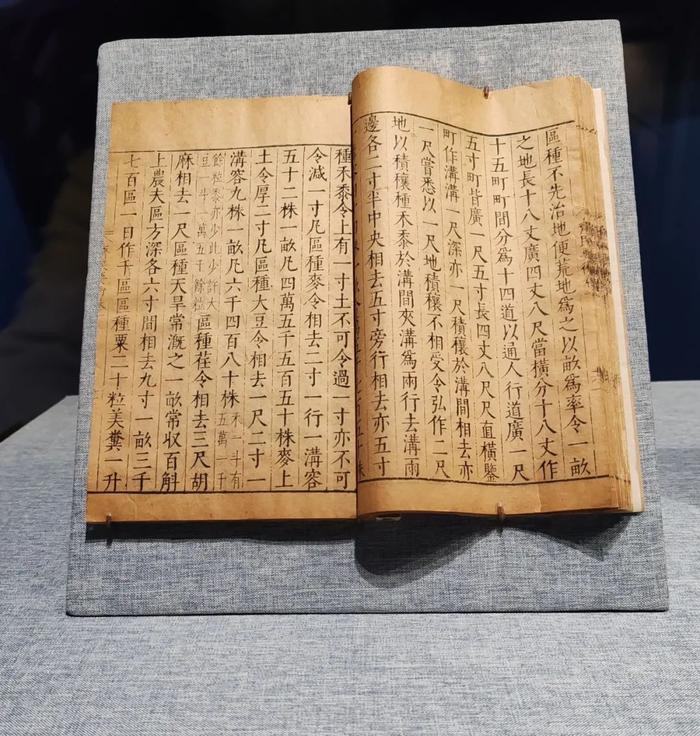 區種不先治地便荒地爲之以畝爲率令一畝
之地長十八丈廣四丈八尺當橫分十八丈作
十五町町間分爲十四道以通人行道廣一尺
五寸町皆廣一尺五寸長四丈八尺尺直橫鑿
町作溝溝一尺深亦一尺積穰於溝間相去亦
一尺嘗悉以一尺地積穰不相受令弘作二尺
地以積穰種禾黍於溝間夾溝爲兩行去溝兩
邊各二寸半中央相去五寸旁行相去亦五寸
種禾黍令上有一寸土不可令過一寸亦不可
令減一寸凡區種麥令相去二寸一行一溝容
五十二株一畝凡四萬五千五百五十株麥上
土令厚二寸凡區種大豆令相去一尺二寸一
溝容九株一畝凡六千四百八十株禾一斗有五萬一千
餘粒黍亦少此少許大豆一斗一萬五千餘粒區種荏令相去三尺胡
麻相去一尺區種天旱常漑之一畝常收百斛
上農夫區方深各六寸間相去九寸一畝三千
七百區一日作千區區種粟二十粒美糞一升